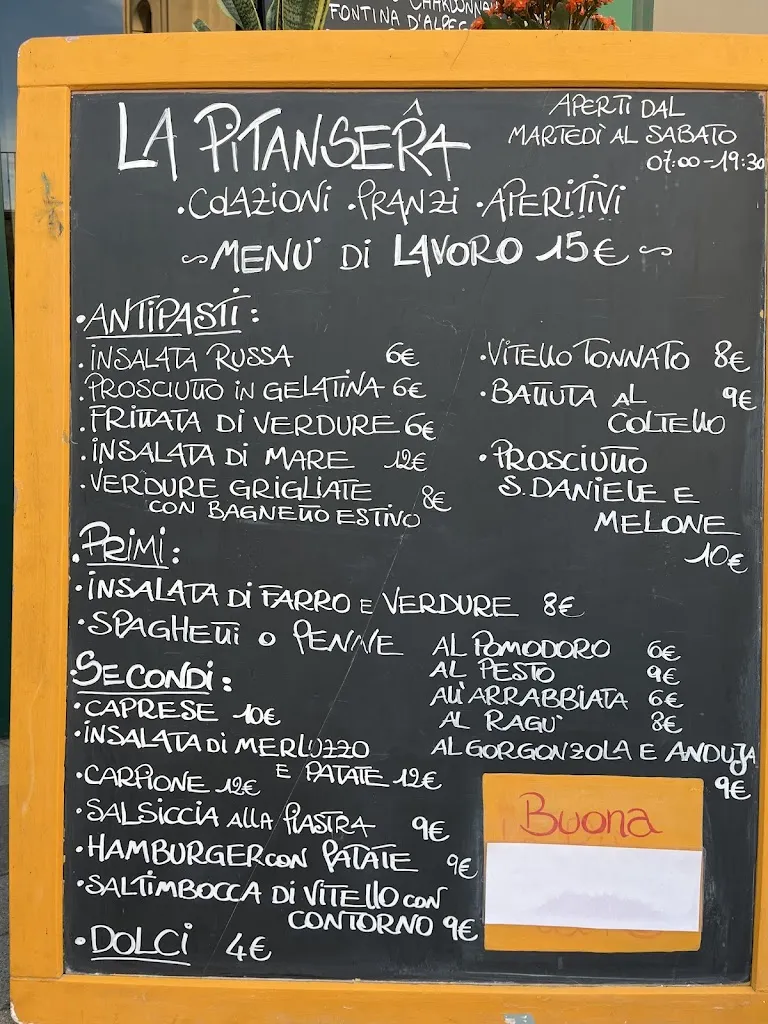 CHARDONNA
FONTINA D'ALPEG
LA PITANSERÂ
APERTI DAL
MARTEDÌ AL SABATO
07:00-19:30
·COLAZIONI ·PRANZI ·APERITIVI
~MENU' DI LAVORO 15€~
·ANTIPASTI:
·INSALATA RUSSA 6€
·PROSCIUTTO IN GELATINA 6€
·FRITTATA DI VERDURE 6€
·INSALATA DI MARE 12€
·VERDURE GRIGLIATE 8€
CON BAGNETTO ESTIVO
·VITELLO TONNATO 8€
·BATTUTA AL 9€
COLTELLO
·PROSCIUTTO
S.DANIELE E
MELONE
10€
·PRIMI:
·INSALATA DI FARRO E VERDURE 8€
·SPAGHETTI O PENNE
AL POMODORO 6€
AL PESTO 9€
ALL'ARRABBIATA 6€
AL RAGU' 8€
AL GORGONZOLA E ANDUJA
9€
·SECONDI:
·CAPRESE 10€
·INSALATA DI MERLUZZO
E PATATE 12€
·CARPIONE 12€
·SALSICCIA ALLA PIASTRA 9€
·HAMBURGER CON PATATE 9€
·SALTIMBOCCA DI VITELLO CON
CONTORNO 9€
·DOLCI 4€
Buona